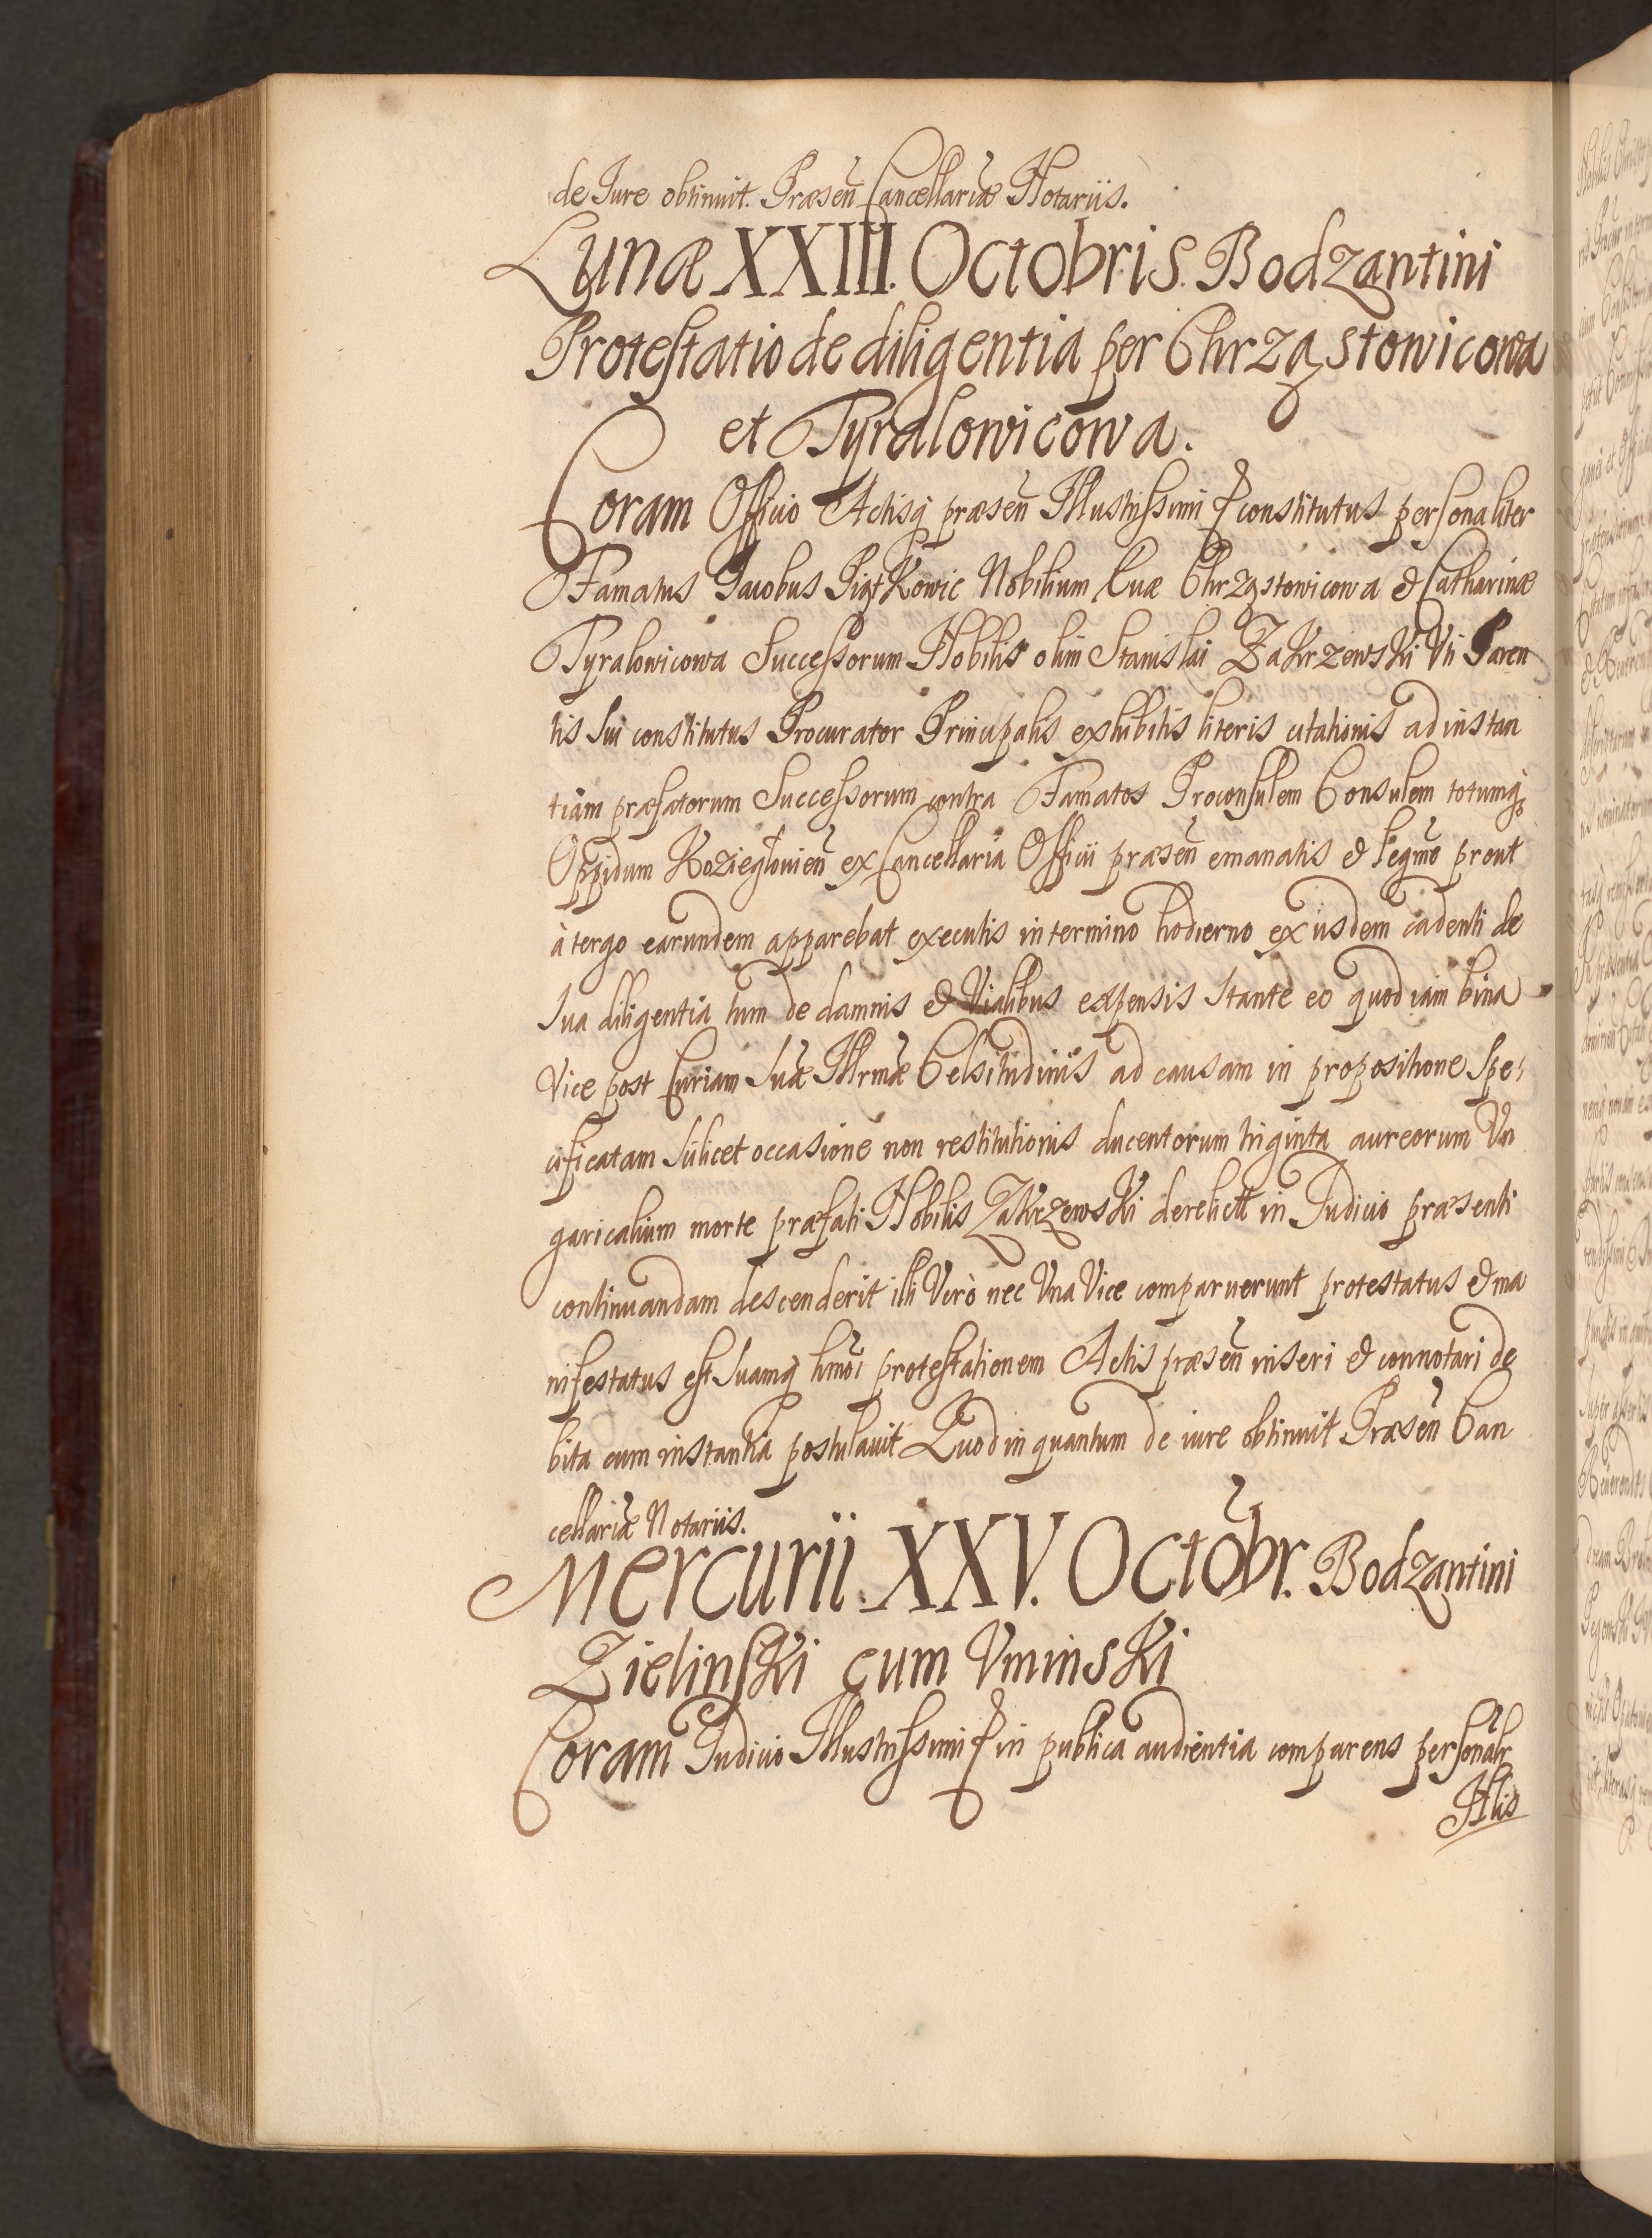 de Jure obtinuit. Præseñ Cancellariæ Notariis.
Lunæ XXIII. Octobris. Bodzantini
Protestatio de diligentia per Chrząstowicowa
et Pyralowicowa.
Coram Officio Actisq præseñ Illustrissimi & constitutus personaliter
Famatus Jacobus Piątkowic Nobilium Evæ Chrząstowicowa & Catharinæ
Pyralowicowa Successorum Nobilis olim Stanislai Zakrzewski Vti Paren
tis sui constitutus Procurator Principalis exhibitis literis citationis ad instan
tiam præfatorum Successorum contra Famatos Proconsulem Consulem totumq
Oppidum Koziegłovieñ ex Cancellaria Officii præseñ emanatis & legme prout
à tergo earundem apparebat executis in termino hodierno ex iisdem cadenti de
sua diligentia tum de damnis & Vialibus expensis stante eo quod iam bina
Vice post Curiam Suæ Illrmæ Celsitudinis ad causam in propositione spe
cificatam scilicet occasione non restitutionis ducentorum triginta aureorum Vn
garicalium morte præfati Nobilis Zakrzewski derelict in Judicio præsenti
continuandam descenderit illi Verò nec Vna Vice comparuerunt protestatus & ma
nifestatus est suamq hmõi protestationem Actis præseñ inseri & connotari de
bita cum instantia postulavit Quod in quantum de iure obtinuit Præseñ Can
cellariæ Notariis.
Mercurii XXV. Octobr. Bodzantini
Zielinski cum Vminski
Coram Judicio Illustrissimi & in publica audientia comparens personalr
Nlis